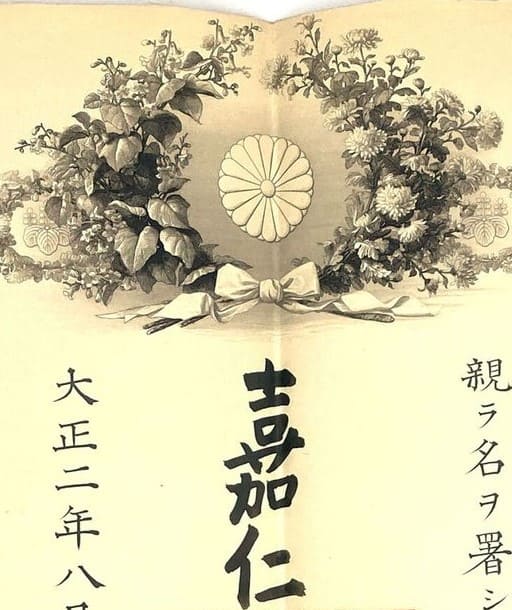 親ラ名ヲ署シ
嘉仁
大正二年八月